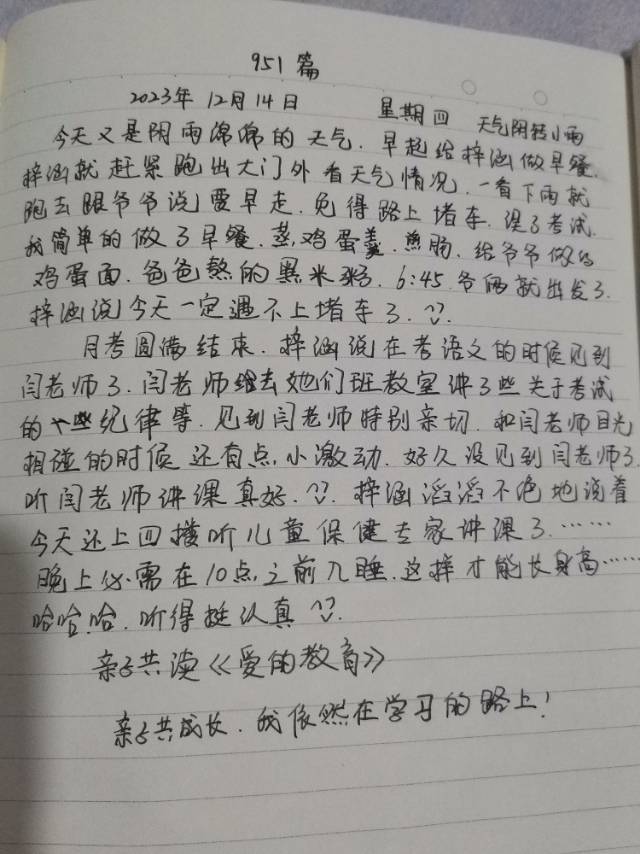 951篇
2023年 12月14日 星期四 天气阴转小雨
今天又是阴雨绵绵的天气.早起给梓涵做早餐.
梓涵就赶紧跑出大门外看天气情况.一看下雨就
跑去跟爷爷说要早走.免得路上堵车.误了考试.
我简单的做了早餐.蒸鸡蛋羹.煎肠.给爷爷做的
鸡蛋面.爸爸熬的黑米粥.6:45.爷俩就出发了.
梓涵说今天一定遇不上堵车了.
月考圆满结束.梓涵说在考语文的时候见到
闫老师了.闫老师去她们班教室讲了些关于考试
的一些纪律等.见到闫老师特别亲切.和闫老师目光
相碰的时候还有点小激动.好久没见到闫老师了.
听闫老师讲课真好.梓涵滔滔不绝地说着
今天还上四楼听儿童保健专家讲课了.……
晚上必需在10点之前入睡.这样才能长身高……
哈哈哈.听得挺认真
亲子共读《爱的教育》
亲子共成长.我依然在学习的路上!